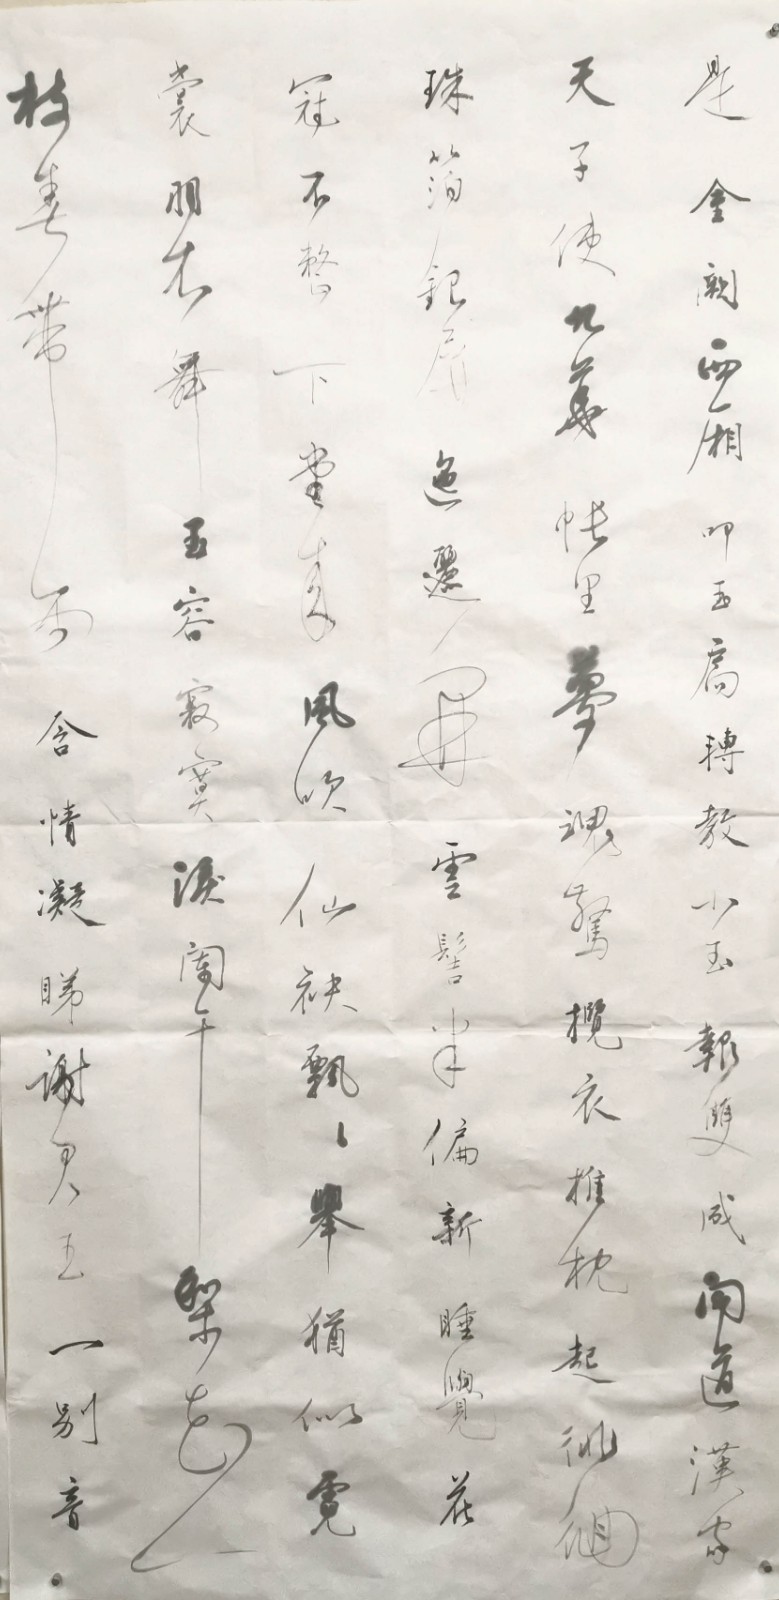 是金阙西厢叩玉扃转教小玉報雙成闻道漢家
天子使九華帐里夢魂驚攬衣推枕起徘徊
珠箔銀屏迤邐開雲髻半偏新睡覺花
冠不整下堂来風吹仙袂飄飄舉猶似霓
裳羽衣舞玉容寂寞淚闌干梨花一
枝春带雨含情凝睇謝君王一别音